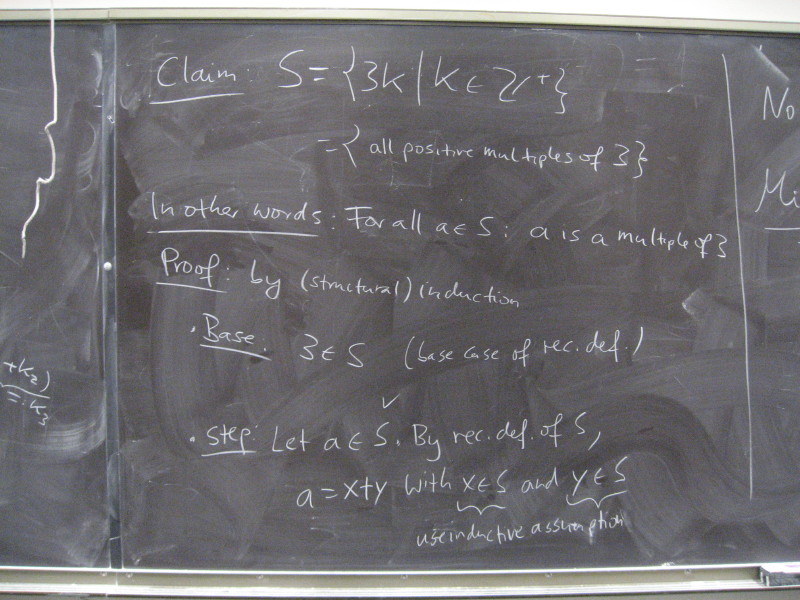 Claim: S = {3k | k ∈ ℤ⁺}
= { all positive multiples of 3}
In other words: For all a ∈ S: a is a multiple of 3
Proof: by (structural) induction
· Base: 3 ∈ S (base case of rec. def.)
✓
· Step: Let a ∈ S. By rec. def. of S,
a = x+y with x ∈ S and y ∈ S
use inductive assumption
+k₂)
=: k₃
No
Mi